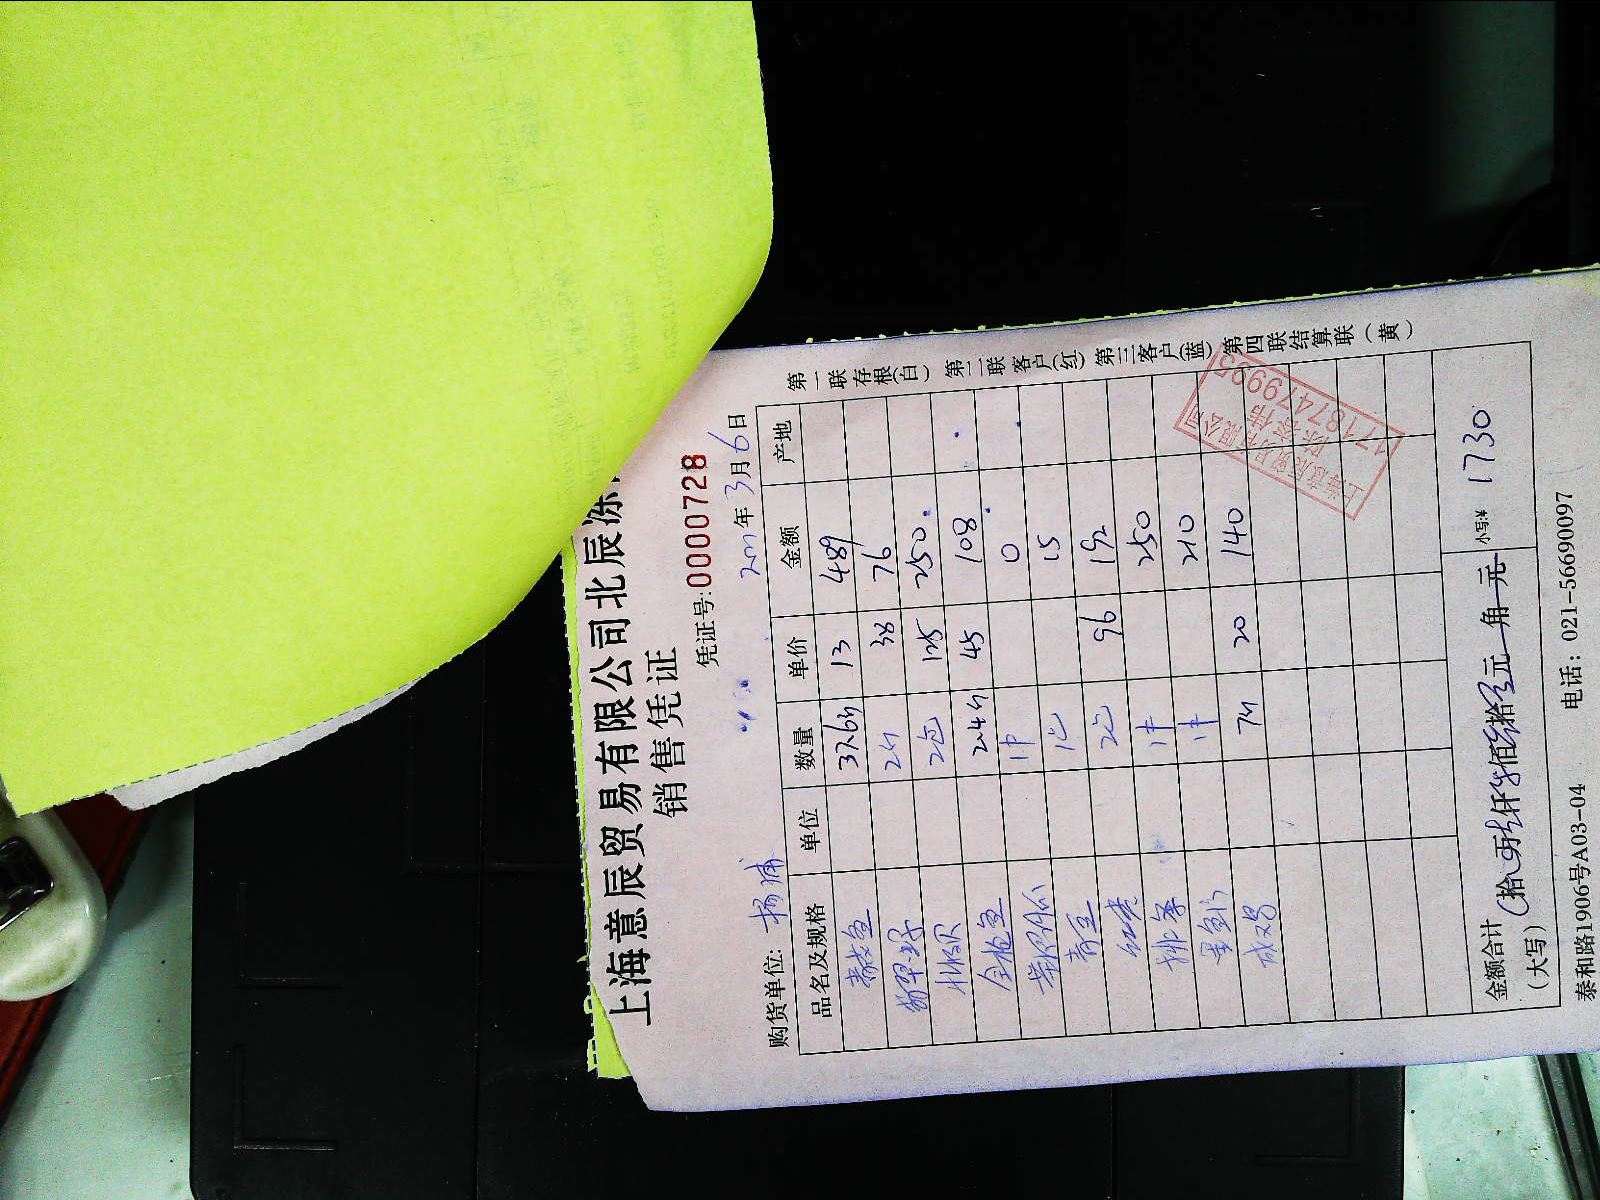 上海意辰贸易有限公司北辰冻
销售凭证
凭证号:0000728
购货单位: 杨浦 年3月6日
品名及规格 单位 数量 单价 金额 产地
37.6斤 13 489
2斤 38 76
2包 125 250
金枪鱼 2.4斤 45 108
0
青豆 1包 15
2包 96 192
排条 1件 250
1件 210
7斤 20 140
金额合计
(大写) (拾 万七仟 佰 拾 元 角 元 小写:¥ 1730
泰和路1906号A03-04 电话: 021-56690097
第一联存根(白) 第二联客户(红) 第三客户(蓝) 第四联结算联(黄)
上海意辰贸易有限公司
17187479995